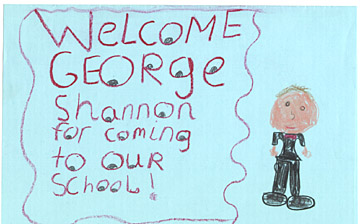 WELCOME
GEORge
Shannon
for coming
to OUR
SCHOOL!